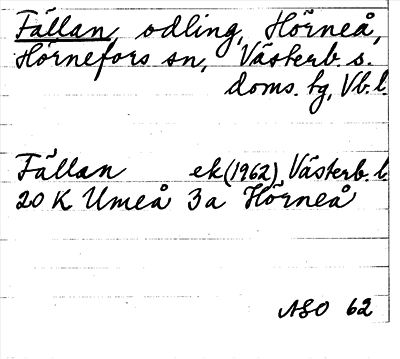 Fällan, odling, Hörneå,
Hörnefors sn, Västerb. s.
doms. tg, Vb. l.
Fällan ek (1962) Västerb. l
20 K Umeå 3a Hörneå
ASO 62